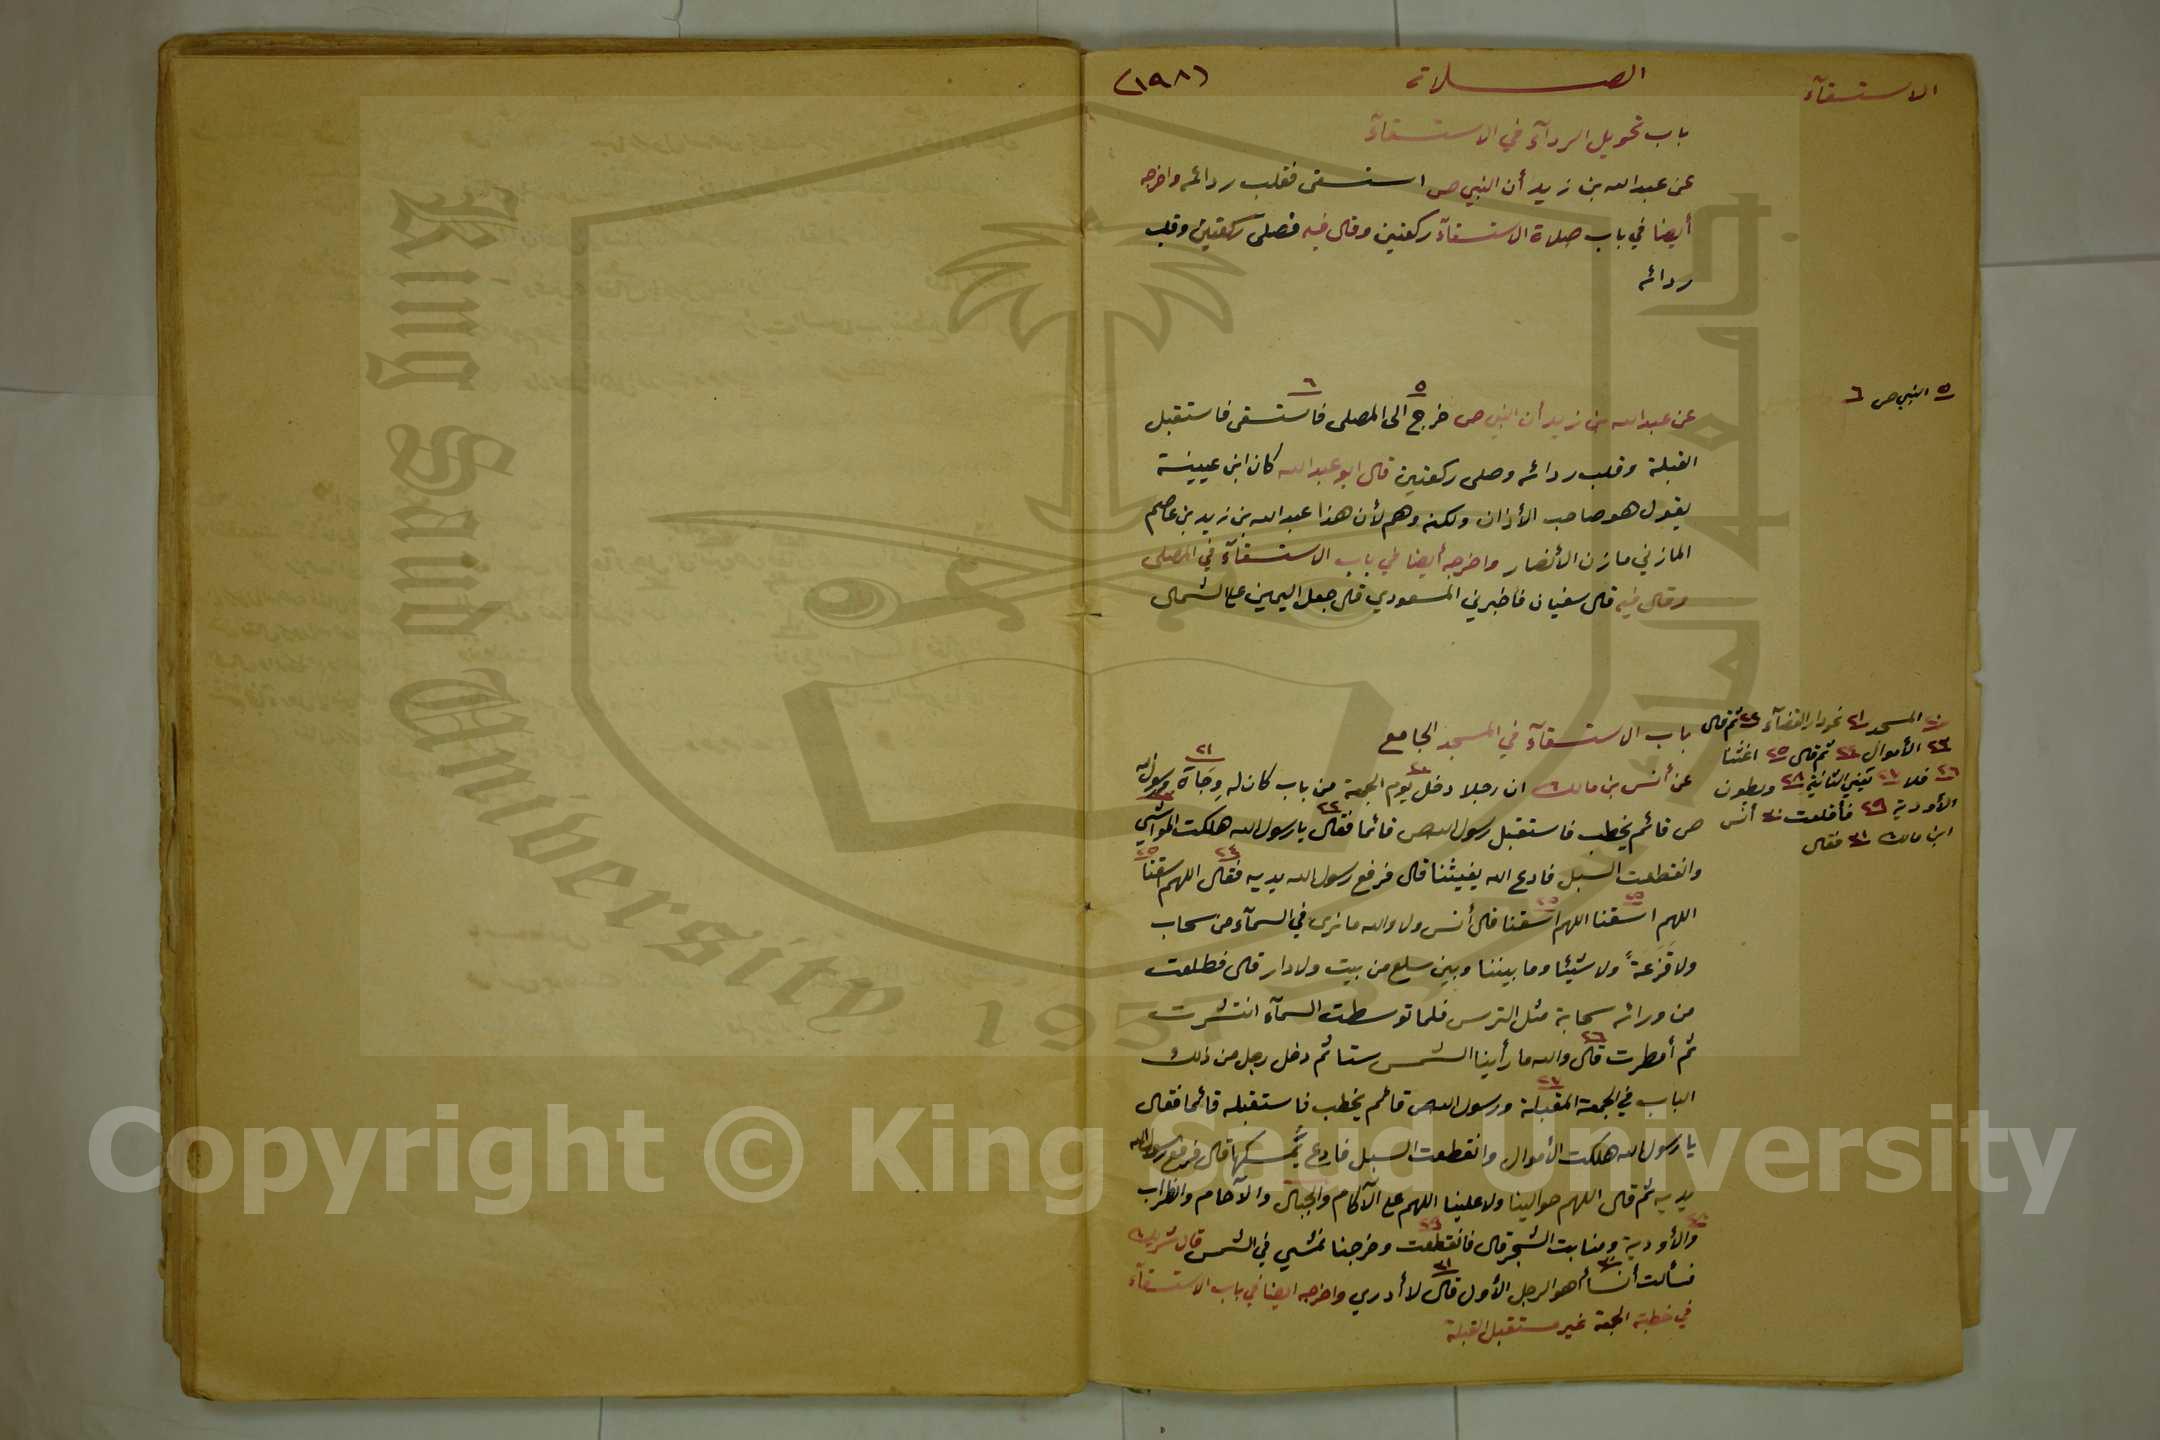 الاستسقآء
الصلاة
(١٩٨)
باب تحويل الردآء في الاستسقآء
عن عبد الله بن زيد أن النبي ص استسقى فقلب ردائه واخرجه
أيضا في باب صلاة الاستسقآء ركعتين وقال فيه فصلى ركعتين وقلب
ردائه
٥ النبي ص ٦
٥ ٦
عن عبد الله بن زيد أن النبي ص خرج الى المصلى فاستسقى فاستقبل
القبلة وقلب ردائه وصلى ركعتين قال ابو عبد الله كان ابن عيينة
يقول هو صاحب الأذان ولكنه وهم لأن هذا عبد الله بن زيد بن عاصم
المازني مازن الأنصار واخرجه أيضا في باب الاستسقآء في المصلى
وقال فيه قال سفيان فاخبرني المسعودي قال جعل اليمين على الشمال
٢٠ المسجد ٢١ نحو دار القضآء ٢٢ ثم قال
٢٣ الأموال ٢٤ ثم قال ٢٥ اغثنا
٢٦ فلا ٢٧ يعني الثانية ٢٨ وبطون
الأودية ٢٩ فأقلعت ٣٠ أنس
ابن مالك ٣١ فقال
باب الاستسقآء في المسجد الجامع
عن أنس بن مالك ان رجلا دخل يوم الجمعة من باب كان له وجاة ورسول الله
ص قائم يخطب فاستقبل رسول الله ص قائما فقال يا رسول الله هلكت المواشي
وانقطعت السبل فادع الله يغيثنا قال فرفع رسول الله يديه فقال اللهم اسقنا
اللهم اسقنا اللهم اسقنا قال أنس ولا والله ما نرى في السمآء من سحاب
ولا قَزَعَةً ولا شيئا وما بيننا وبين سلع من بيت ولا دار قال فطلعت
من ورائه سحابة مثل الترس فلما توسطت السمآء انتشرت
ثم أمطرت قال والله ما رأينا الشمس ستا ثم دخل رجل من ذلك
الباب في الجمعة المقبلة ورسول الله ص قائم يخطب فاستقبله قائما فقال
يا رسول الله هلكت الأموال وانقطعت السبل فادع يمسكها قال فرفع رسول الله
يديه ثم قال اللهم حوالينا ولا علينا اللهم على الآكام والجبال والآجام والظراب
والأودية ومنابت الشجر قال فانقطعت وخرجنا نمشي في الشمس قال شريك
فسألت أنسا أهو الرجل الأول قال لا أدري واخرجه ايضا في باب الاستسقآء
في خطبة الجمعة غير مستقبل القبلة
King Saud University
1957
جامعة الملك سعود
Copyright © King Saud University